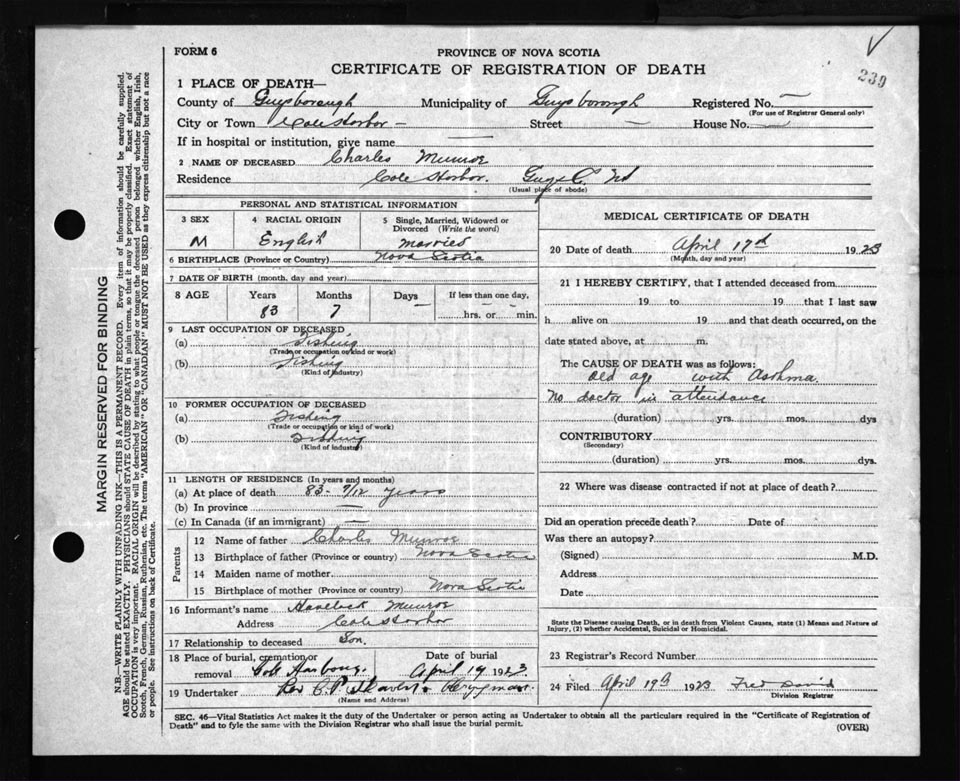 FORM 6
PROVINCE OF NOVA SCOTIA
239
CERTIFICATE OF REGISTRATION OF DEATH
1 PLACE OF DEATH—
County of Guysborough Municipality of Guysborough Registered No. —
(For use of Registrar General only)
City or Town Cole Harbor — Street — House No. —
If in hospital or institution, give name —
2 NAME OF DECEASED Charles Munroe
Residence Cole Harbor. Guys Co. NS
(Usual place of abode)
PERSONAL AND STATISTICAL INFORMATION
3 SEX 4 RACIAL ORIGIN 5 Single, Married, Widowed or Divorced (Write the word)
M English Married
6 BIRTHPLACE (Province or Country) Nova Scotia
7 DATE OF BIRTH (month, day and year)
8 AGE Years Months Days If less than one day,
83 7 — hrs. or min.
9 LAST OCCUPATION OF DECEASED
(a) Fishing
(Trade or occupation or kind or work)
(b) Fishing
(Kind of industry)
10 FORMER OCCUPATION OF DECEASED
(a) Fishing
(Trade or occupation or kind of work)
(b) Fishing
(Kind of industry)
11 LENGTH OF RESIDENCE (In years and months)
(a) At place of death 83- 7/12 years
(b) In province —
(c) In Canada (if an immigrant) —
Parents
12 Name of father Charles Munroe
13 Birthplace of father (Province or country) Nova Scotia
14 Maiden name of mother
15 Birthplace of mother (Province or country) Nova Scotia
16 Informant's name Havelock Munroe
Address Cole Harbor
17 Relationship to deceased Son.
18 Place of burial, cremation or removal Cole Harbour. Date of burial April 19 1923.
19 Undertaker Rev C.P. Clergyman.
(Name and Address)
MEDICAL CERTIFICATE OF DEATH
20 Date of death April 17th 1923
(Month, day and year)
21 I HEREBY CERTIFY, that I attended deceased from
19 to 19 that I last saw
h alive on 19 and that death occurred, on the
date stated above, at m.
The CAUSE OF DEATH was as follows:
Old age with Asthma.
No doctor in attendance
(duration) yrs. mos. dys
CONTRIBUTORY
(Secondary)
(duration) yrs. mos. dys.
22 Where was disease contracted if not at place of death?
Did an operation precede death? Date of
Was there an autopsy?
(Signed) M.D.
Address
Date
State the Disease causing Death, or in death from Violent Causes, state (1) Means and Nature of Injury, (2) whether Accidental, Suicidal or Homicidal.
23 Registrar's Record Number
24 Filed April 19th 1923 Fred David
Division Registrar
SEC. 46—Vital Statistics Act makes it the duty of the Undertaker or person acting as Undertaker to obtain all the particulars required in the "Certificate of Registration of
Death" and to fyle the same with the Division Registrar who shall issue the burial permit.
(OVER)
MARGIN RESERVED FOR BINDING
N.B.—WRITE PLAINLY WITH UNFADING INK—THIS IS A PERMANENT RECORD. Every item of information should be carefully supplied.
AGE should be stated EXACTLY. PHYSICIANS should STATE CAUSE OF DEATH in plain terms, so that it may be properly classified. Exact statement of
OCCUPATION is very important. RACIAL ORIGIN will be described by stating to what people or tongue the deceased person belonged whether English, Irish,
Scotch, French, German, Russian, Ruthenian, etc. The terms "AMERICAN" OR "CANADIAN" MUST NOT BE USED as they express citizenship but not a race
or people. See instructions on back of Certificate.